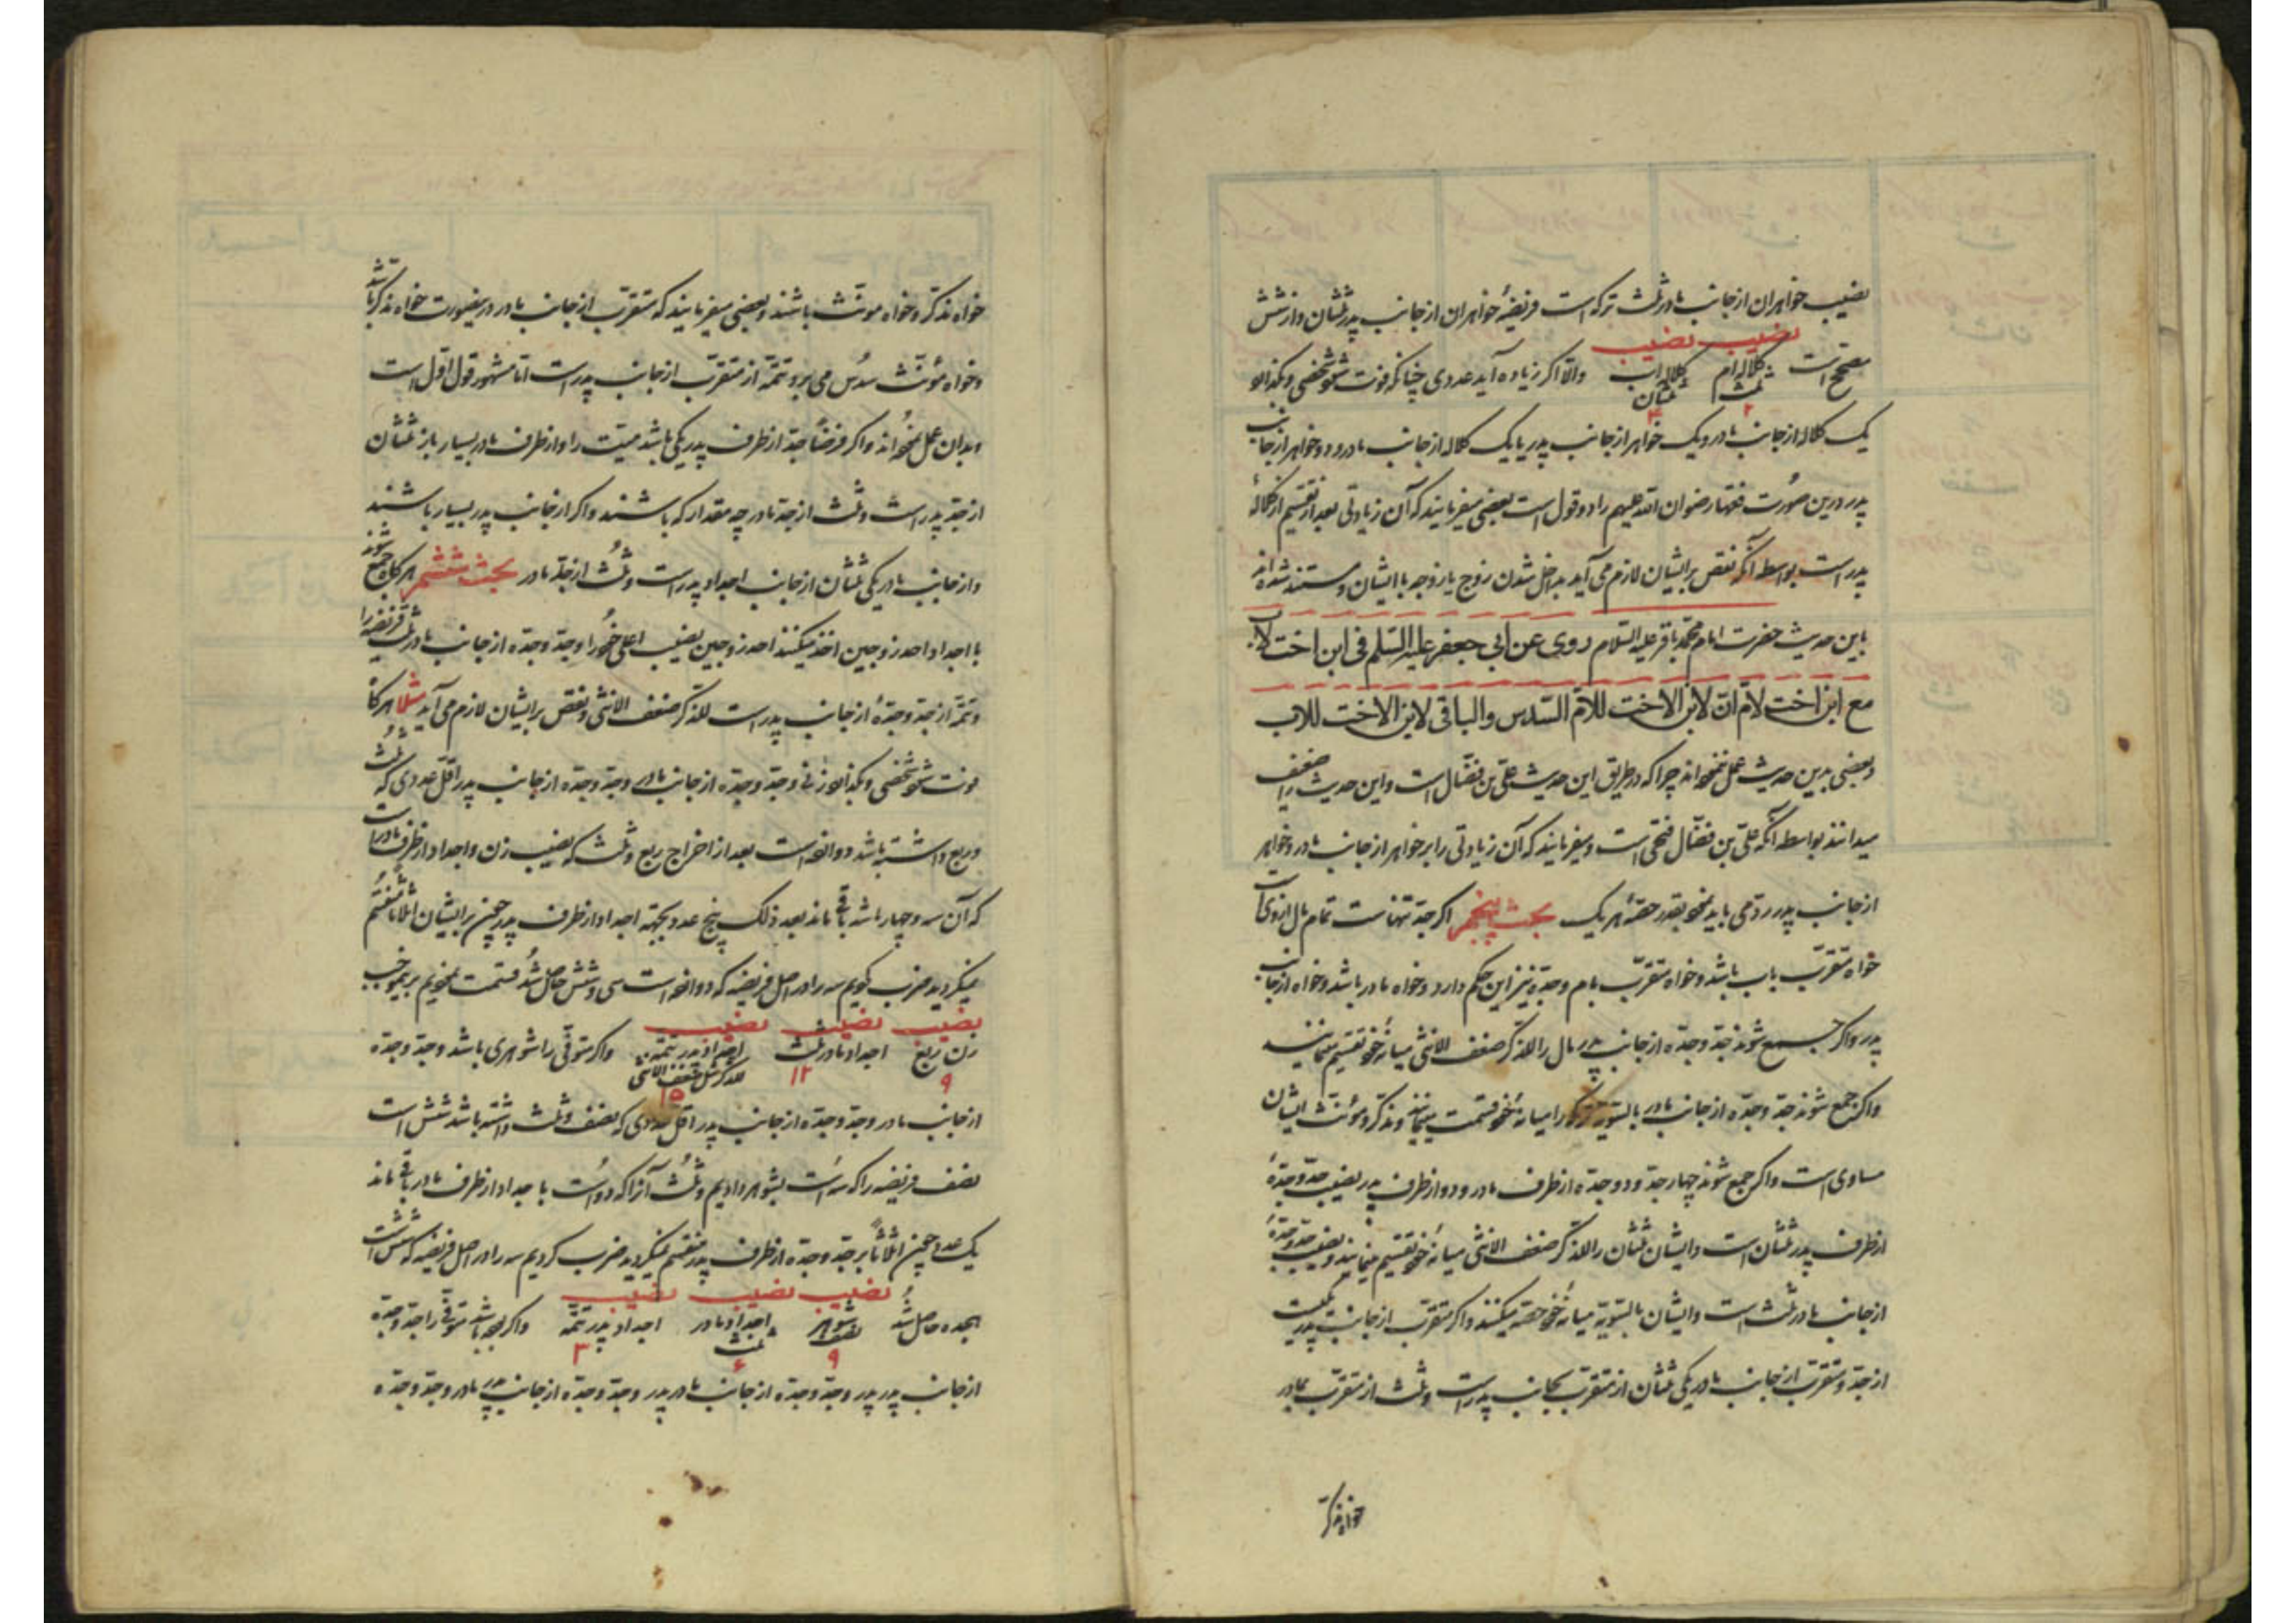 نصیب خواهران از جانب مادر ثلث ترکه است فریضهٔ خواهران از جانب پدر ثلثان و از شش
نصیب نصیب
مصحح است کلاله ام ثلث ۲ کلاله اب ثلثان ۴ والا اگر زیاده آید عددی چنانکه فوت شود شخصی و بگذارد
یک کلاله از جانب مادر و یک خواهر از جانب پدر یا یک کلاله از جانب مادر و دو خواهر از جانب
پدر درین صورت فقها رضوان الله علیهم را دو قول است بعضی میفرمایند که آن زیادتی بعد از تقسیم از کلالهٔ
پدر است بواسطه آنکه نقص بر ایشان لازم می آید بداخل شدن زوج یا زوجه با ایشان و مستند شده اند
باین حدیث حضرت امام محمد باقر علیه السلام روی عن ابی جعفر علیه السلم فی ابن اخت لاب
مع ابن اخت لام ان لابن الاخت للام السدس والباقی لابن الاخت للاب
و بعضی بدین حدیث عمل ننموده اند چرا که در طریق این حدیث علی بن فضال است و این حدیث را ضعیف
میدانند بواسطه آنکه علی بن فضال فطحی است و میفرمایند که آن زیادتی را بر خواهر از جانب مادر و خواهر
از جانب پدر رد می باید نمود بقدر حصهٔ هر یک بحث پنجم اگر جد تنهاست تمام مال از وی است
خواه متقرب باب باشد و خواه متقرب بام و جده نیز این حکم دارد و خواه مادر باشد و خواه از جانب
پدر و اگر جمع شوند جد و جده از جانب پدر مال را للذکر ضعف الانثی میانهٔ خود تقسیم مینمایند
و اگر جمع شوند جد و جده از جانب مادر بالسویه ترکه را میانهٔ خود قسمت مینمایند و مذکر و مؤنث ایشان
مساوی است و اگر جمع شوند چهار جد و دو جده از طرف مادر و دو از طرف پدر نصیب جد و جدهٔ
از طرف پدر ثلثان است و ایشان ثلثان را للذکر ضعف الانثی میانهٔ خود تقسیم مینمایند و نصیب جد و جدهٔ
از جانب مادر ثلث است و ایشان بالسویه میانهٔ خود حصه میکنند و اگر متقرب از جانب پدر یکیست
از جد و متقرب از جانب مادر یکی ثلثان از متقرب بجانب پدر است و ثلث از متقرب بمادر
خواه مذکر
خواه مذکر و خواه مونث باشند و بعضی میفرمایند که متقرب از جانب مادر درینصورت خواه مذکر باشد
و خواه مؤنث سدس می برد و تتمه از متقرب از جانب پدر است اما مشهور قول اول است
و بدان عمل نموده اند و اگر فرضاً جد از طرف پدر یکی باشد میت را و از طرف مادر بسیار باز ثلثان
از جد پدر است و ثلث از جد مادر چه مقدار که باشند و اگر از جانب پدر بسیار باشند
و از جانب مادر یکی ثلثان از جانب اجداد پدر است و ثلث از جد مادر بحث ششم هرگاه جمع شوند
با اجداد احد زوجین اخذ میکنند احد زوجین نصیب اعلی خود را و جد و جده از جانب مادر ثلث فریضه را
و تتمه از جد و جدهٔ از جانب پدر است للذکر ضعف الانثی و نقص بر ایشان لازم می آید مثلا هرگاه
فوت شود شخصی و بگذارد زنی و جد و جده از جانب مادر و جد و جده از جانب پدر اقل عددی که ثلث
و ربع داشته باشد دوازده است بعد از اخراج ربع و ثلث که نصیب زن و اجداد از طرف مادر است
که آن سه و چهار باشد باقی ماند بعد ذلک پنج عدد و بجهة اجداد از طرف پدر چون بر ایشان اثلاثا منقسم
نمیگردید ضرب نمودیم سه را در اصل فریضه که دوازده است سی و شش حاصل شد قسمت نمودیم برینموجب
نصیب نصیب نصیب
زن ربع ۹ اجداد مادر ثلث ۱۲ اجداد پدر تتمه للذکر مثل ضعف الانثی ۱۵ و اگر متوفی را شوهری باشد و جد و جده
از جانب مادر و جد و جده از جانب پدر اقل عددی که نصف و ثلث داشته باشد شش است
نصف فریضه را که سه است بشوهر دادیم و ثلث آنرا که دو است با جداد از طرف مادر باقی ماند
یک عدد چون اثلاثاً بر جد و جده از طرف پدر منقسم نمیگردید ضرب کردیم سه را در اصل فریضه که شش است
نصیب نصیب نصیب
هجده حاصل شد شوهر نصف ۹ اجداد مادر ثلث ۶ اجداد پدر تتمه ۳ و اگر بوده باشد متوفی را جد و جده
از جانب پدر پدر و جد و جده از جانب مادر پدر و جد و جده از جانب پدر مادر و جد و جده